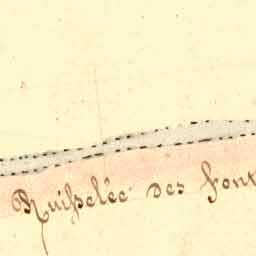 Ruisselée des Font